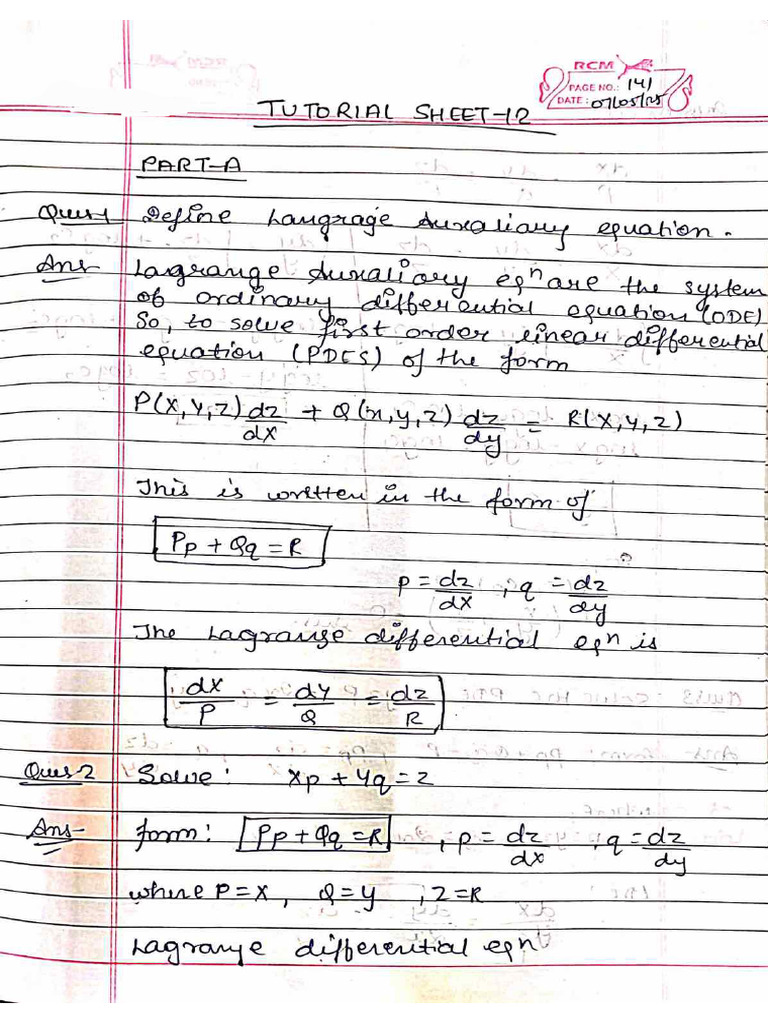 RCM
PAGE NO.: 141
DATE: 07/05/25
TUTORIAL SHEET-12
PART-A
Ques1 Define Langrage Auxaliary equation.
Ans Lagrange Auxaliary eqⁿ are the system
of ordinary differential equation (ODE)
So, to solve first order linear differential
equation (PDES) of the form
P(x,y,z) dz/dx + Q(x,y,z) dz/dy = R(x,y,z)
This is written in the form of
Pp + Qq = R
p = dz/dx , q = dz/dy
The Lagrange differential eqⁿ is
dx/P = dy/Q = dz/R
Ques2 Solve: xp + yq = z
Ans- form: Pp + Qq = R , p = dz/dx , q = dz/dy
where P=x, Q=y , z=R
Lagrange differential eqⁿ